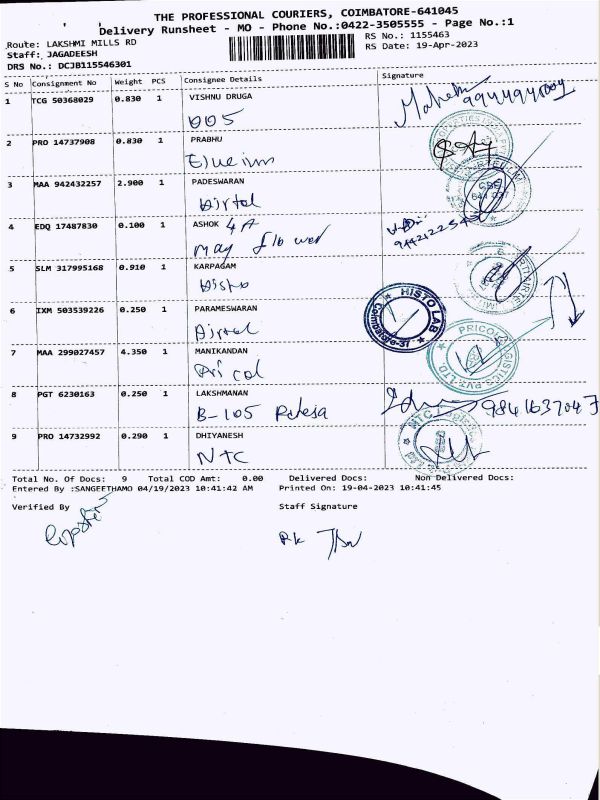 THE PROFESSIONAL COURIERS, COIMBATORE-641045
Delivery Runsheet - MO - Phone No.:0422-3505555 - Page No.:1
Route: LAKSHMI MILLS RD
RS No.: 1155463
Staff: JAGADEESH
RS Date: 19-Apr-2023
DRS No.: DCJB115546301
S No Consignment No Weight PCS Consignee Details Signature
1 TCG 50368029 0.830 1 VISHNU DRUGA
005
2 PRO 14737908 0.830 1 PRABHU
3 MAA 942432257 2.900 1 PADESWARAN
Airtel
4 EDQ 17487830 0.100 1 ASHOK 4A
may flower
5 SLM 317995168 0.910 1 KARPAGAM
Histo
HISTO LAB
Coimbatore-37
6 IXM 503539226 0.250 1 PARAMESWARAN
Airtel
PRICOL LOGISTICS PVT. LTD.
7 MAA 299027457 4.350 1 MANIKANDAN
Pricol
8 PGT 6230163 0.250 1 LAKSHMANAN
B-105
9841637047
9 PRO 14732992 0.290 1 DHIYANESH
NTC
NTC
Total No. Of Docs: 9 Total COD Amt: 0.00 Delivered Docs: Non Delivered Docs:
Entered By :SANGEETHAMO 04/19/2023 10:41:42 AM Printed On: 19-04-2023 10:41:45
Verified By Staff Signature